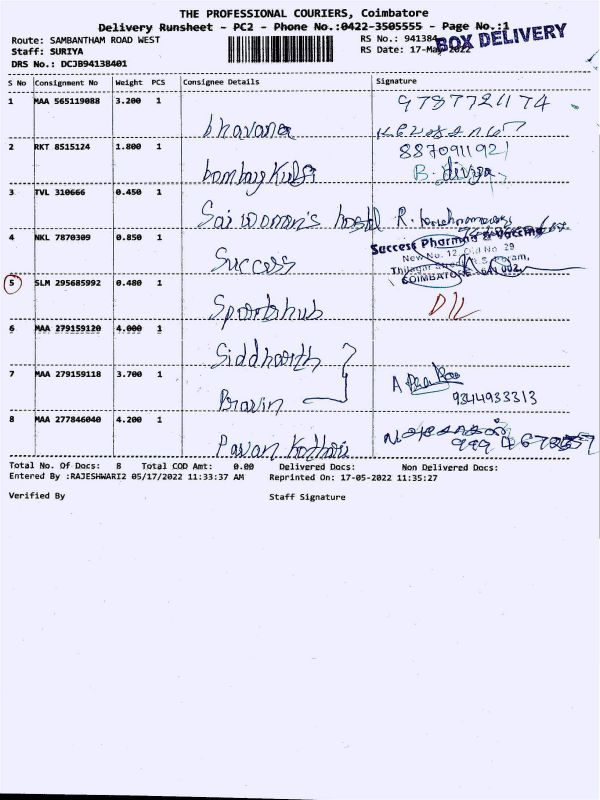 THE PROFESSIONAL COURIERS, Coimbatore
Delivery Runsheet - PC2 - Phone No.:0422-3505555 - Page No.:1
Route: SAMBANTHAM ROAD WEST
RS No.: 941384
BOX DELIVERY
Staff: SURIYA
RS Date: 17-May-2022
DRS No.: DCJB94138401
S No Consignment No Weight PCS Consignee Details Signature
1 MAA 565119088 3.200 1 bhavana
2 RKT 8515124 1.800 1 bombay Kulfi 8870911921
B. divya
3 TVL 310666 0.450 1 Sai women's hostel R.
4 NKL 7870309 0.850 1 Success
Success Pharma & Vaccine
New No. 12, Old No. 29
COIMBATORE - 641 002.
5 SLM 295685992 0.480 1 Sportshub D/L
6 MAA 279159120 4.000 1 Siddharth
7 MAA 279159118 3.700 1 Bravin A
9344933313
8 MAA 277846040 4.200 1 Pavan Kothari
Total No. Of Docs: 8 Total COD Amt: 0.00 Delivered Docs: Non Delivered Docs:
Entered By :RAJESHWARI2 05/17/2022 11:33:37 AM Reprinted On: 17-05-2022 11:35:27
Verified By Staff Signature